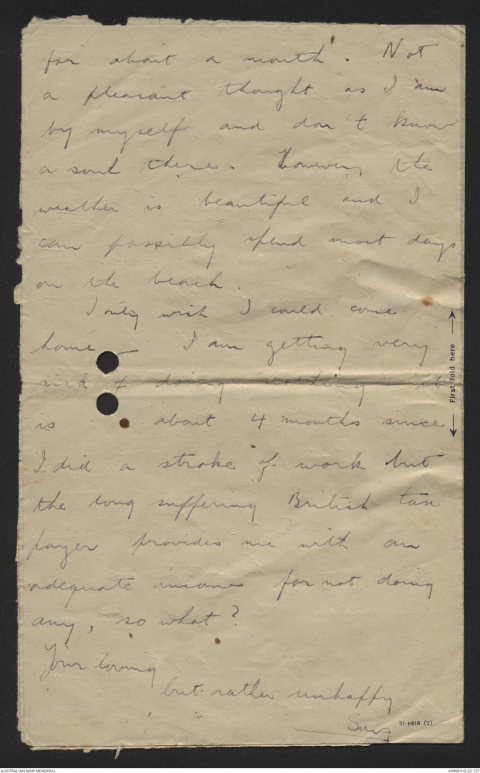 for about a month. Not
a pleasant thought as I am
by myself and don't know
a soul there. However, the
weather is beautiful and I
can possibly spend most days
on the beach.
I only wish I could come
home — I am getting very
sick of doing nothing it
is about 4 months since
I did a stroke of work but
the long suffering British tax
payer provides me with an
adequate income for not doing
any, so what?
Your loving
but rather unhappy
First fold here
51-6818 (2)
AUSTRALIAN WAR MEMORIAL